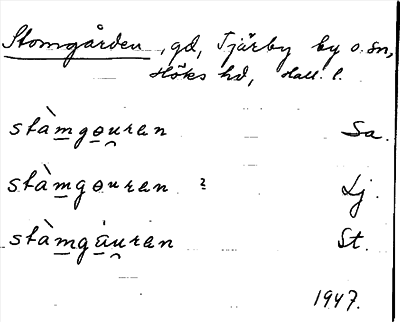 Stomgården, gd, Tjärby by o. sn,
Höks hd, Hall. l.
stàmgouran Sa.
stàmgouran ? Lj.
stàmgáuran St.
1947.